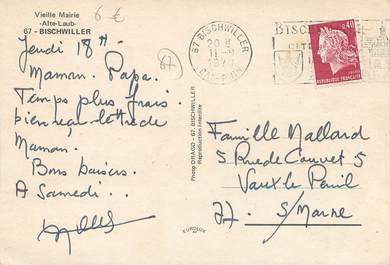 Vieille Mairie
-Alte-Laub-
67 - BISCHWILLER
6 €
Jeudi 18H
Maman. Papa.
Temps plus frais.
bien reçu lettre de
Maman.
Bons baisers.
A Samedi...
67
67 BISCHWILLER
11-9
BAS-RHIN
BISCHWILLER
0,40
REPUBLIQUE FRANÇAISE
Photo DRAGO - 67. BISCHWILLER
Reproduction interdite
EUROLUX
Famille Mallard
5 Rue de Couvet 5
Vaux le Penil
77. S/Marne